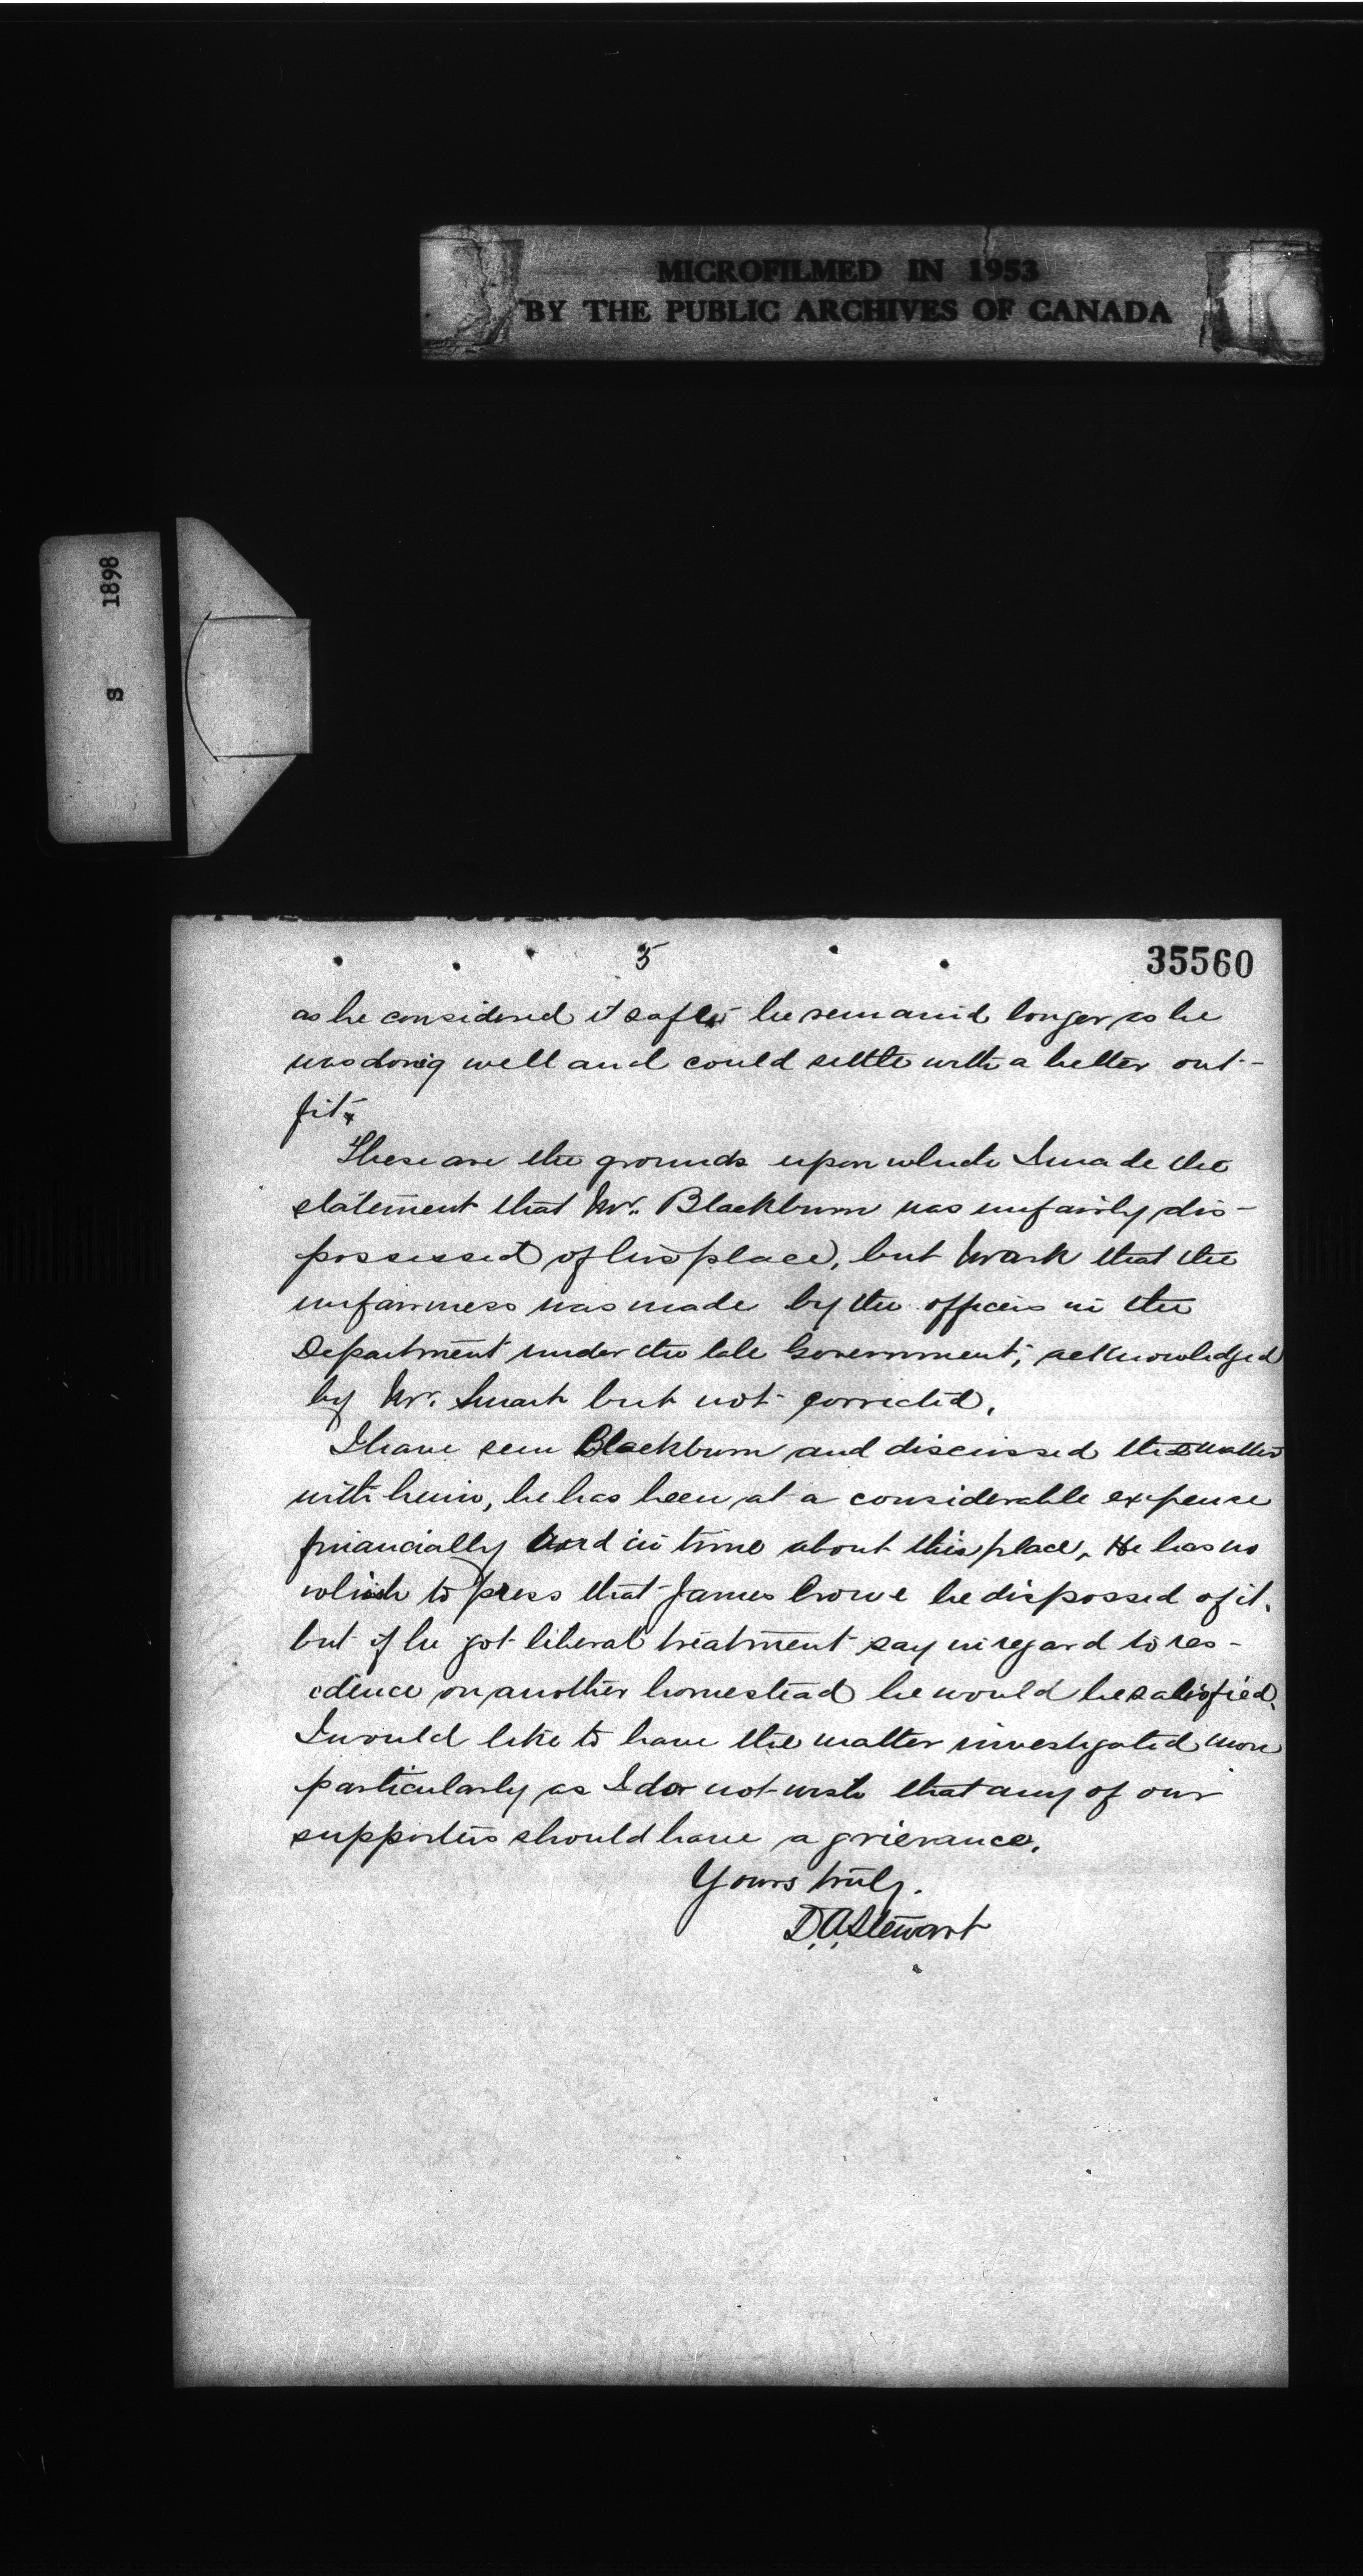 MICROFILMED IN 1953
BY THE PUBLIC ARCHIVES OF CANADA
S 1898
5
35560
as he considered it safe he remained longer as he
was doing well and could settle with a better out-
fit.
These are the grounds upon which I made the
statement that Mr. Blackburn was unfairly dis-
possessed of his place, but mark that the
unfairness was made by the officers in the
Department under the late Government; acknowledged
by Mr. Smart but not corrected.
I have seen Blackburn and discussed the matter
with him, he has been at a considerable expense
financially and in time about this place. He has no
wish to press that James Crowe be disposed of it,
but if he got liberal treatment say in regard to res-
idence on another homestead he would be satisfied.
I would like to have the matter investigated more
particularly as I do not wish that any of our
supporters should have a grievance.
Yours truly.
D.A. Stewart